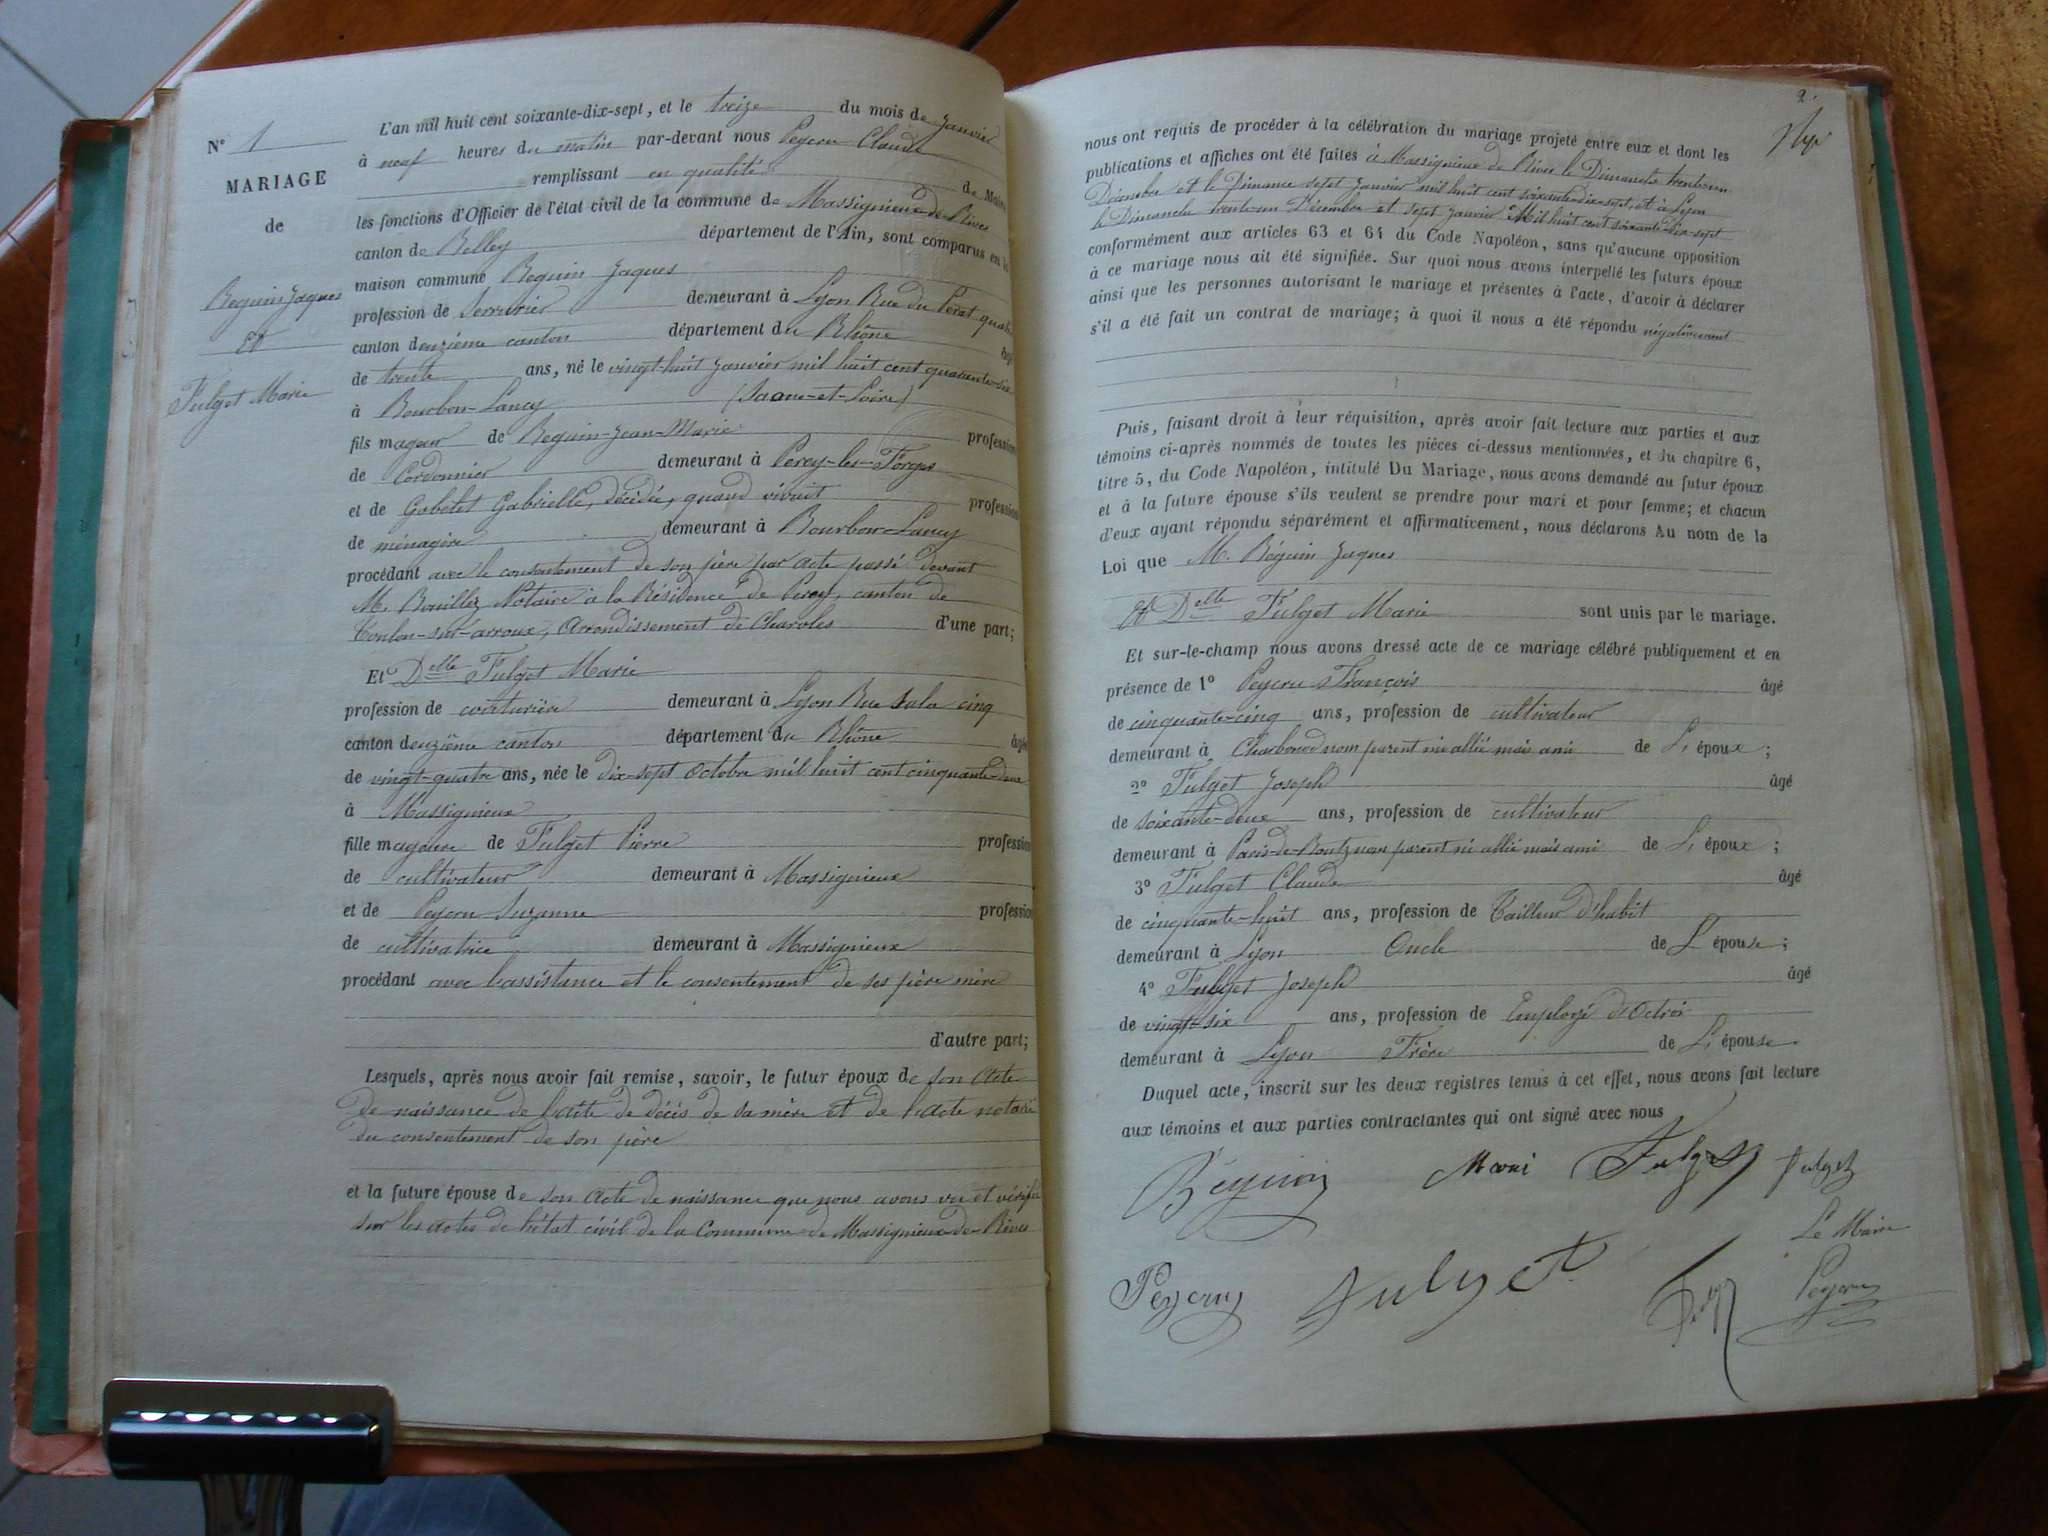 N° 1
MARIAGE
de
Beguin Jaques
Et
Fulget Marie
L'an mil huit cent soixante-dix-sept, et le treize du mois de Janvier
à neuf heures du matin par-devant nous Peycru Claude
remplissant en qualité de Maire
les fonctions d'Officier de l'état civil de la commune de Massignieu de Rives
canton de Belley département de l'Ain, sont comparus en la
maison commune Beguin Jaques
profession de Serrurier demeurant à Lyon Rue du Perat quatre
canton deuzième canton département du Rhône âgé
de trente ans, né le vingt-huit Janvier mil huit cent quarante-six
à Bourbon-Lancy (Saone-et-Loire)
fils mageur de Beguin-Jean-Marie profession
de Cordonnier demeurant à Percy-les-Forges
et de Gobelet Gabrielle, décédée, quand vivait profession
de ménagère demeurant à Bourbon-Lancy
procédant avec le consentement de son père par acte passé devant
M. Bouillez Notaire à la Résidence de Percy, canton de
Toulon-sur-arroux, Arrondissement de Charoles d'une part;
Et Delle Fulget Marie
profession de couturière demeurant à Lyon Rue Sala cinq
canton deuzième canton département du Rhône âgée
de vingt-quatre ans, née le dix-sept Octobre mil huit cent cinquante-deux
à Massignieux
fille mageure de Fulget Pierre profession
de cultivateur demeurant à Massignieux
et de Peycru Suzanne profession
de cultivatrice demeurant à Massignieux
procédant avec l'assistance et le consentement de ses père mère
d'autre part;
Lesquels, après nous avoir fait remise, savoir, le futur époux de son Acte
de naissance de l'acte de décès de sa mère et de l'acte notarié
du consentement de son père
et la future épouse de son Acte de naissance que nous avons vu et vérifié
sur les actes de l'état civil de la Commune de Massignieux-de-Rives
2.
nous ont requis de procéder à la célébration du mariage projeté entre eux et dont les
publications et affiches ont été faites à Massignieux de Rives le Dimanche trente-un
Décembre et le Dimance sept Janvier mil huit cent soixante-dix-sept, et à Lyon
le Dimanche trente-un Décembre et sept Janvier Mil huit cent soixante-dix-sept
conformément aux articles 63 et 64 du Code Napoléon, sans qu'aucune opposition
à ce mariage nous ait été signifiée. Sur quoi nous avons interpellé les futurs époux
ainsi que les personnes autorisant le mariage et présentes à l'acte, d'avoir à déclarer
s'il a été fait un contrat de mariage; à quoi il nous a été répondu négativement
Puis, faisant droit à leur réquisition, après avoir fait lecture aux parties et aux
témoins ci-après nommés de toutes les pièces ci-dessus mentionnées, et du chapitre 6,
titre 5, du Code Napoléon, intitulé Du Mariage, nous avons demandé au futur époux
et à la future épouse s'ils veulent se prendre pour mari et pour femme; et chacun
d'eux ayant répondu séparément et affirmativement, nous déclarons Au nom de la
Loi que M. Béguin Jaques
Et Delle Fulget Marie sont unis par le mariage.
Et sur-le-champ nous avons dressé acte de ce mariage célébré publiquement et en
présence de 1° Peycru François âgé
de cinquante-cinq ans, profession de cultivateur
demeurant à Charbonod nom parent ni allié mais ami de L'époux;
2° Fulget Joseph âgé
de soixante-deux ans, profession de cultivateur
demeurant à nom parent ni allié mais ami de L'époux;
3° Fulget Claude âgé
de cinquante-huit ans, profession de Tailleur d'habit
demeurant à Lyon Oncle de L'épouse;
4° Fulget Joseph âgé
de vingt-six ans, profession de Employé d'Octroi
demeurant à Lyon Frère de L'épouse.
Duquel acte, inscrit sur les deux registres tenus à cet effet, nous avons fait lecture
aux témoins et aux parties contractantes qui ont signé avec nous
Béguin Mari Fulget Fulget
Le Maire
Peycru Fulget Peycru